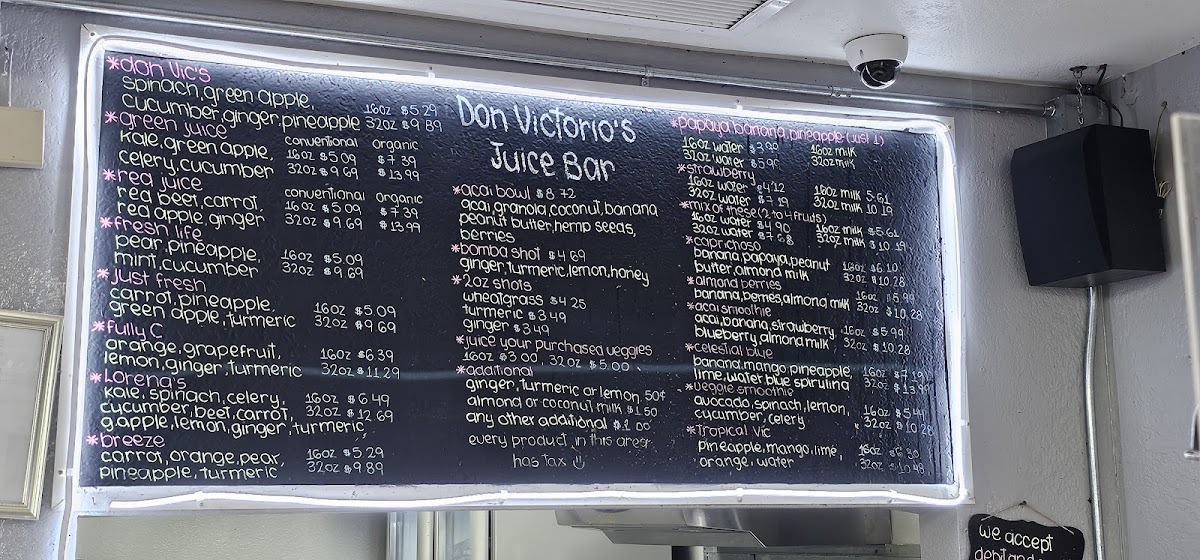 *don Vic's
spinach, green apple,
cucumber, ginger, pineapple
16oz $5.29
32oz $9.89
*green juice
kale, green apple,
celery, cucumber
conventional organic
16oz $5.09 $7.39
32oz $9.69 $13.99
*red juice
red beet, carrot,
red apple, ginger
conventional organic
16oz $5.09 $7.39
32oz $9.69 $13.99
*fresh life
pear, pineapple,
mint, cucumber
16oz $5.09
32oz $9.69
*just fresh
carrot, pineapple,
green apple, turmeric
16oz $5.09
32oz $9.69
*fully C
orange, grapefruit,
lemon, ginger, turmeric
16oz $6.39
32oz $11.29
*Lorena's
kale, spinach, celery,
cucumber, beet, carrot,
g.apple, lemon, ginger, turmeric
16oz $6.49
32oz $12.69
*breeze
carrot, orange, pear,
pineapple, turmeric
16oz $5.29
32oz $9.89
Don Victorio's
Juice Bar
*acai bowl $8.72
acai, granola, coconut, banana
peanut butter, hemp seeds,
berries
*bomba shot $4.69
ginger, turmeric, lemon, honey
*2oz shots
wheatgrass $4.25
turmeric $3.49
ginger $3.49
*juice your purchased veggies
16oz $3.00 32oz $5.00
*additional
ginger, turmeric or lemon, 50¢
almond or coconut milk $1.50
any other additional $1.00
every product in this area
has tax
*papaya, banana, pineapple (just 1)
16oz water 16oz milk
32oz water 32oz milk
*strawberry
16oz water $4.12 16oz milk 5.61
32oz water $7.19 32oz milk 10.19
*mix of these (2 to 4 fruits)
16oz water $4.90 16oz milk $5.61
32oz water $7.68 32oz milk $10.19
*caprichoso
banana, papaya, peanut
butter, almond milk
16oz $6.10
32oz $10.28
*almond berries
banana, berries, almond milk
16oz $5.99
32oz $10.28
*acai smoothie
acai, banana, strawberry,
blueberry, almond milk
16oz $5.99
32oz $10.28
*celestial blue
banana, mango, pineapple,
lime, water blue spirulina
16oz $7.19
32oz $13.99
*veggie smoothie
avocado, spinach, lemon,
cucumber, celery
16oz $5.49
32oz $10.28
*Tropical Vic
pineapple, mango, lime,
orange, water
16oz
32oz
we accept
debit and